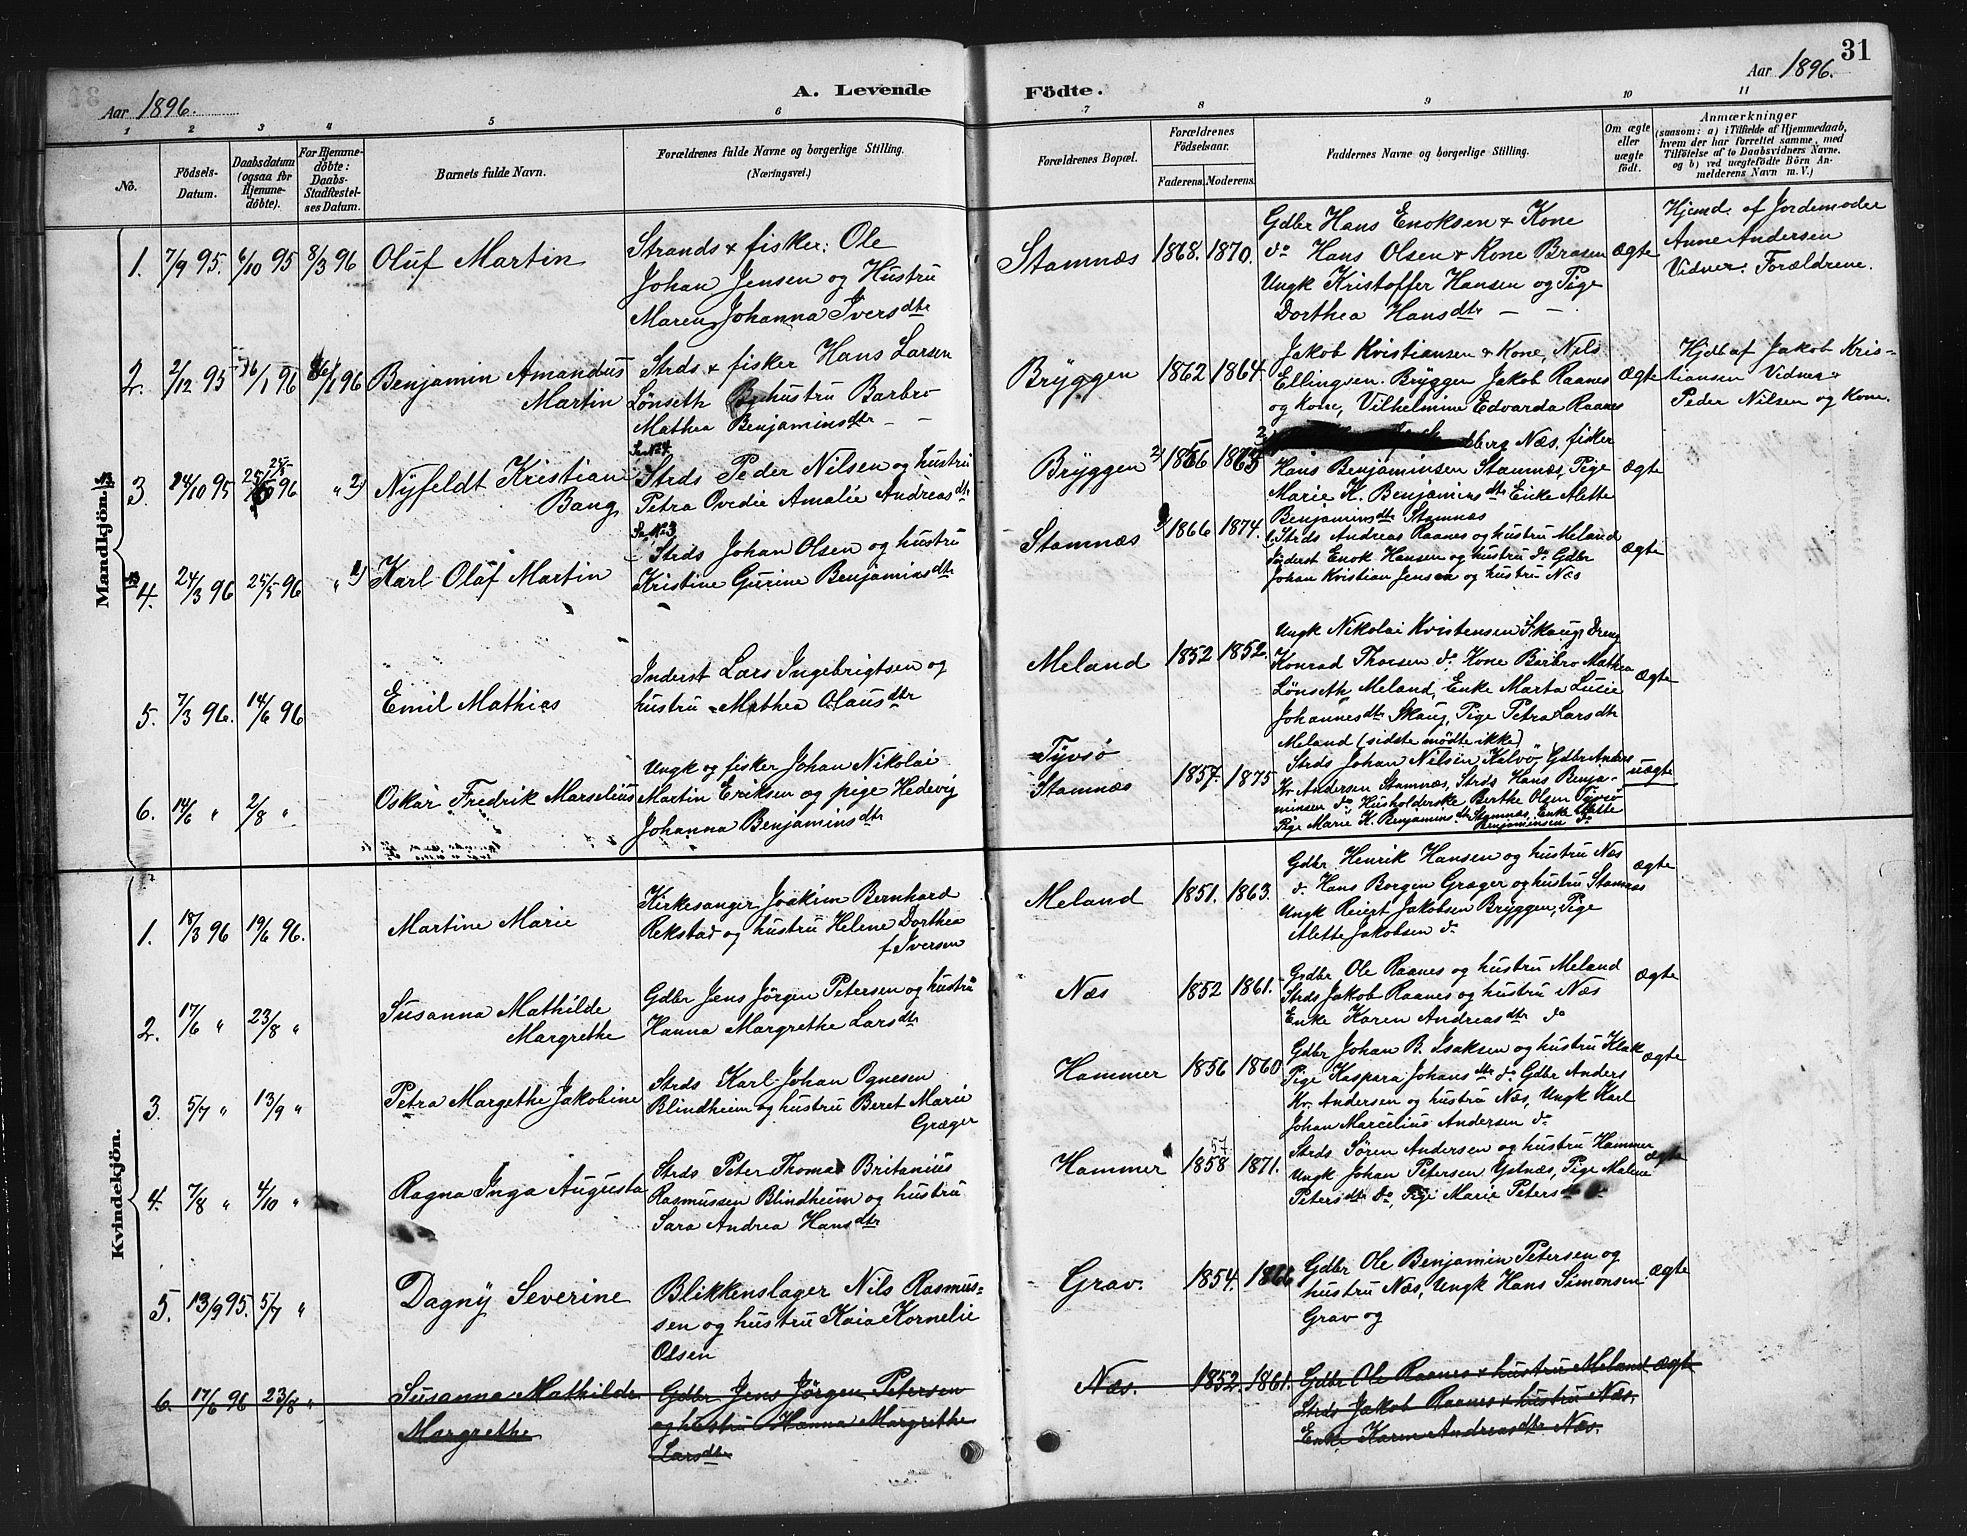 31
Aar 1896.
A. Levende
Födte.
Aar 1896.
1 2 3 4 5 6 7 8 9 10 11
No.
Födsels-
Datum.
Daabsdatum
(ogsaa for
Hjemme-
döbte).
For Hjemme-
döbte:
Daabs-
Stadfæstel-
ses Datum.
Barnets fulde Navn.
Forældrenes fulde Navne og borgerlige Stilling.
(Næringsvei.)
Forældrenes Bopæl.
Forældrenes
Födselsaar.
Faderens. Moderens.
Faddernes Navne og borgerlige Stilling.
Om ægte
eller
uægte
födt.
Anmærkninger
(saasom: a) i Tilfælde af Hjemmedaab,
hvem der har forrettet samme, med
Tilföielse af to Daabsvidners Navne.
og b) ved uegtefödte Börn An-
melderens Navn m. V.)
Mandkjön.
1. 7/9 95. 6/10 95 8/3 96 Oluf Martin
Strands & fisker: Ole
Johan Jensen og Hustru
Maren Johanna Iversdtr
Stamnæs 1868. 1870.
Gdbr Hans Enoksen & Kone
do Hans Olsen & Kone Brasen
Ungk Kristoffer Hansen og Pige
Dorthea Hansdtr — —
ægte
Hjemd. af Jordemoder
Anne Andersen
Vidner: Forældrene.
2. 2/12 95 /1 96 /1 96 Benjamin Amandus
Martin
Strds & fisker Hans Larsen
Lönseth og hustru Barbro
Mathea Benjaminsdtr — —
Bryggen 1862 1864.
Jakob Kristiansen & Kone, Nils
Ellingsen. Bryggen Jakob Raanes
og kone, Vilhelmine Edvarda Raanes
ægte
Hjdb af Jakob Kris-
tiansen Vidner
Peder Nilsen og Kone.
3. 24/10 95 96 " 2) Nyfeldt Kristian
Bang
Se No 4
Strds Peder Nilsen og hustru
Petra Ovedie Amalie Andreasdtr
Bryggen 2) 1865
berg Næs, fisker
Hans Benjaminsen Stamnæs, Pige
Marie K. Benjaminsdtr Enke Alette
Benjaminsdtr Stamnæs
ægte
4. 24/3 96 25/5 96 " 1) Karl Olaf Martin
Se No 3
Strds Johan Olsen og hustru
Kristine Gurine Benjaminsdtr
Stamnæs 1866 1874.
Strds Andreas Raanes og hustru Meland
Inderst Enok Hansen og hustru do Gdbr
Johan Kristian Jensen og hustru Næs
ægte
5. 7/3 96. 14/6 96 Emil Mathias
Inderst Lars Ingebrigtsen og
hustru Mathea Olausdtr
Meland 1852 1852.
Ungk Nikolai Kristensen Skaug, Dreng
Konrad Thorsen do Kone Barbro Mathea
Lönseth Meland, Enke Marta Lusie
Johannesdtr Skaug, Pige Petra Larsdtr
Meland (sidste mödte ikke)
ægte
6. 14/6 " 2/8 " Oskar Fredrik Marselius
Ungk og fisker Johan Nikolai
Martin Eriksen og pige Hedevig
Johanna Benjaminsdtr
Tyvsö
Stamnæs 1857. 1875
Strds Johan Nilsen Kalvö, Gdbr Anders
Kr Andersen Stamnæs, Strds Hans Benja-
minsen do, Husholderske Berthe Olsen Tyvsö
Pige Marie K. Benjaminsdtr Stamnæs, Enke Alette
Benjaminsen do
uægte
Kvindekjön.
1. 18/3 96 19/6 96. Martine Marie
Kirkesanger Joakim Bernhard
Rekstad og hustru Helene Dorthea
f Iversen
Meland 1851. 1863.
Gdbr Henrik Hansen og hustru Næs
do Hans Borgen Græger og hustru Stamnæs
Ungk Reiert Jakobsen Bryggen, Pige
Alette Jakobsen do
ægte
2. 17/6 " 23/8 " Susanna Mathilde
Margrethe
Gdbr Jens Jörgen Petersen og hustru
Hanna Margrethe Larsdtr
Næs 1852 1861.
Gdbr Ole Raanes og hustru Meland
Strds Jakob Raanes og hustru Næs
Enke Karen Andreasdtr do
ægte
3. 5/7 " 13/9 " Petra Margethe Jakobine
Strds Karl Johan Ognesen
Blindheim og hustru Beret Marie
Græger
Hammer 1856 1860
Gdbr Johan B. Isaksen og hustru Klak
Pige Kaspara Johansdtr do Gdbr Anders
Kr. Andersen og hustru Næs, Ungk Karl
Johan Marcelius Andersen do
ægte
4. 7/8 " 4/10 " Ragna Inga Augusta
Strds Peter Thomas Britanius
Rasmussen Blindheim og hustru
Sara Andrea Hansdtr
Hammer 57 1858 1871.
Strds Sören Andersen og hustru Hammer
Ungk Johan Petersen Ystnæs, Pige Malene
Petersdtr do, Pige Marie Peters
ægte
5. 13/9 95. 5/7 " Dagny Severine
Blikkenslager Nils Rasmus-
sen og hustru Kaia Kornelie
Olsen
Grav. 1854. 1866
Gdbr Ole Benjamin Petersen og
hustru Næs, Ungk Hans Simonsen
Grav og
ægte
6. 17/6 96 23/8 " Susanna Mathilde
Margrethe
Gdbr Jens Jörgen Petersen
og hustru Hanna Margrethe
Larsdtr
Næs. 1852. 1861.
Gdbr Ole Raanes & hustru Meland
Strds Jakob Raanes & hustru Næs,
Enke Karen Andreasdtr Næs.
ægte